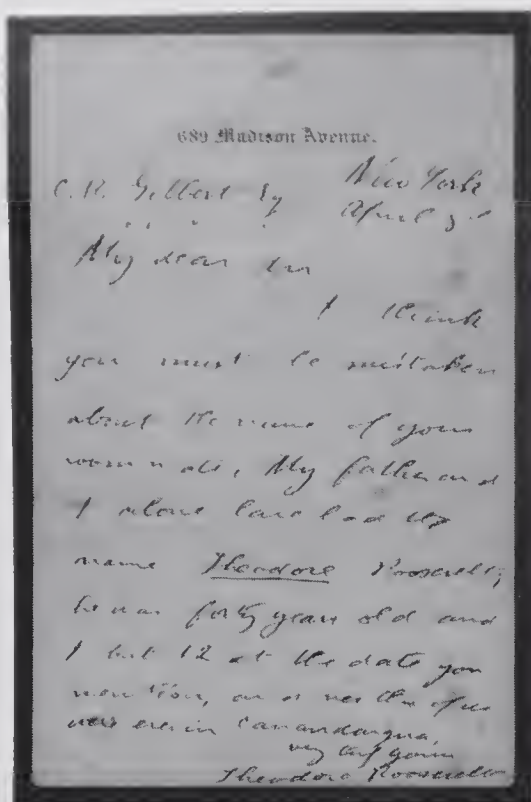 689 Madison Avenue.
C. R. Gilbert Esq New York
April 3d
My dear Sir
I think
you must be mistaken
about the name of your
room mate. My father and
I alone have had the
name Theodore Roosevelt;
he was forty years old and
I but 12 at the date you
mention, and neither of us
were ever in Canandaigua.
very truly yours
Theodore Roosevelt